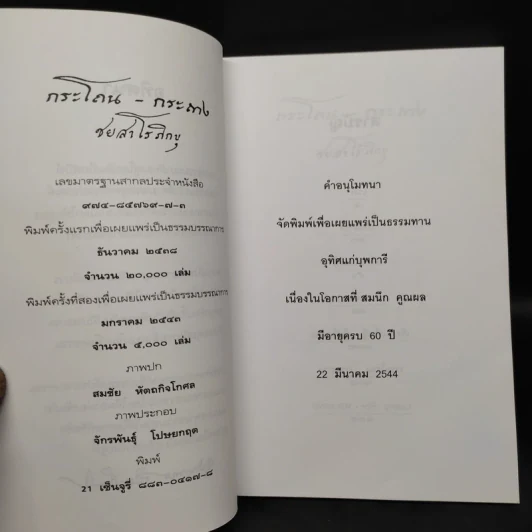 กระโถน - กระถาง
ชยสาโรภิกขุ
เลขมาตรฐานสากลประจำหนังสือ
๙๗๔-๘๕๗๖๙-๗-๓
พิมพ์ครั้งแรกเพื่อเผยแพร่เป็นธรรมบรรณาการ
ธันวาคม ๒๕๓๘
จำนวน ๒๐,๐๐๐ เล่ม
พิมพ์ครั้งที่สองเพื่อเผยแพร่เป็นธรรมบรรณาการ
มกราคม ๒๕๔๓
จำนวน ๕,๐๐๐ เล่ม
ภาพปก
สมชัย หัตถกิจโกศล
ภาพประกอบ
จักรพันธุ์ โปษยกฤต
พิมพ์
21 เซ็นจูรี่ ๘๘๓-๐๔๑๗-๘
คำอนุโมทนา
จัดพิมพ์เพื่อเผยแพร่เป็นธรรมทาน
อุทิศแก่บุพการี
เนื่องในโอกาสที่ สมนึก คูณผล
มีอายุครบ 60 ปี
22 มีนาคม 2544